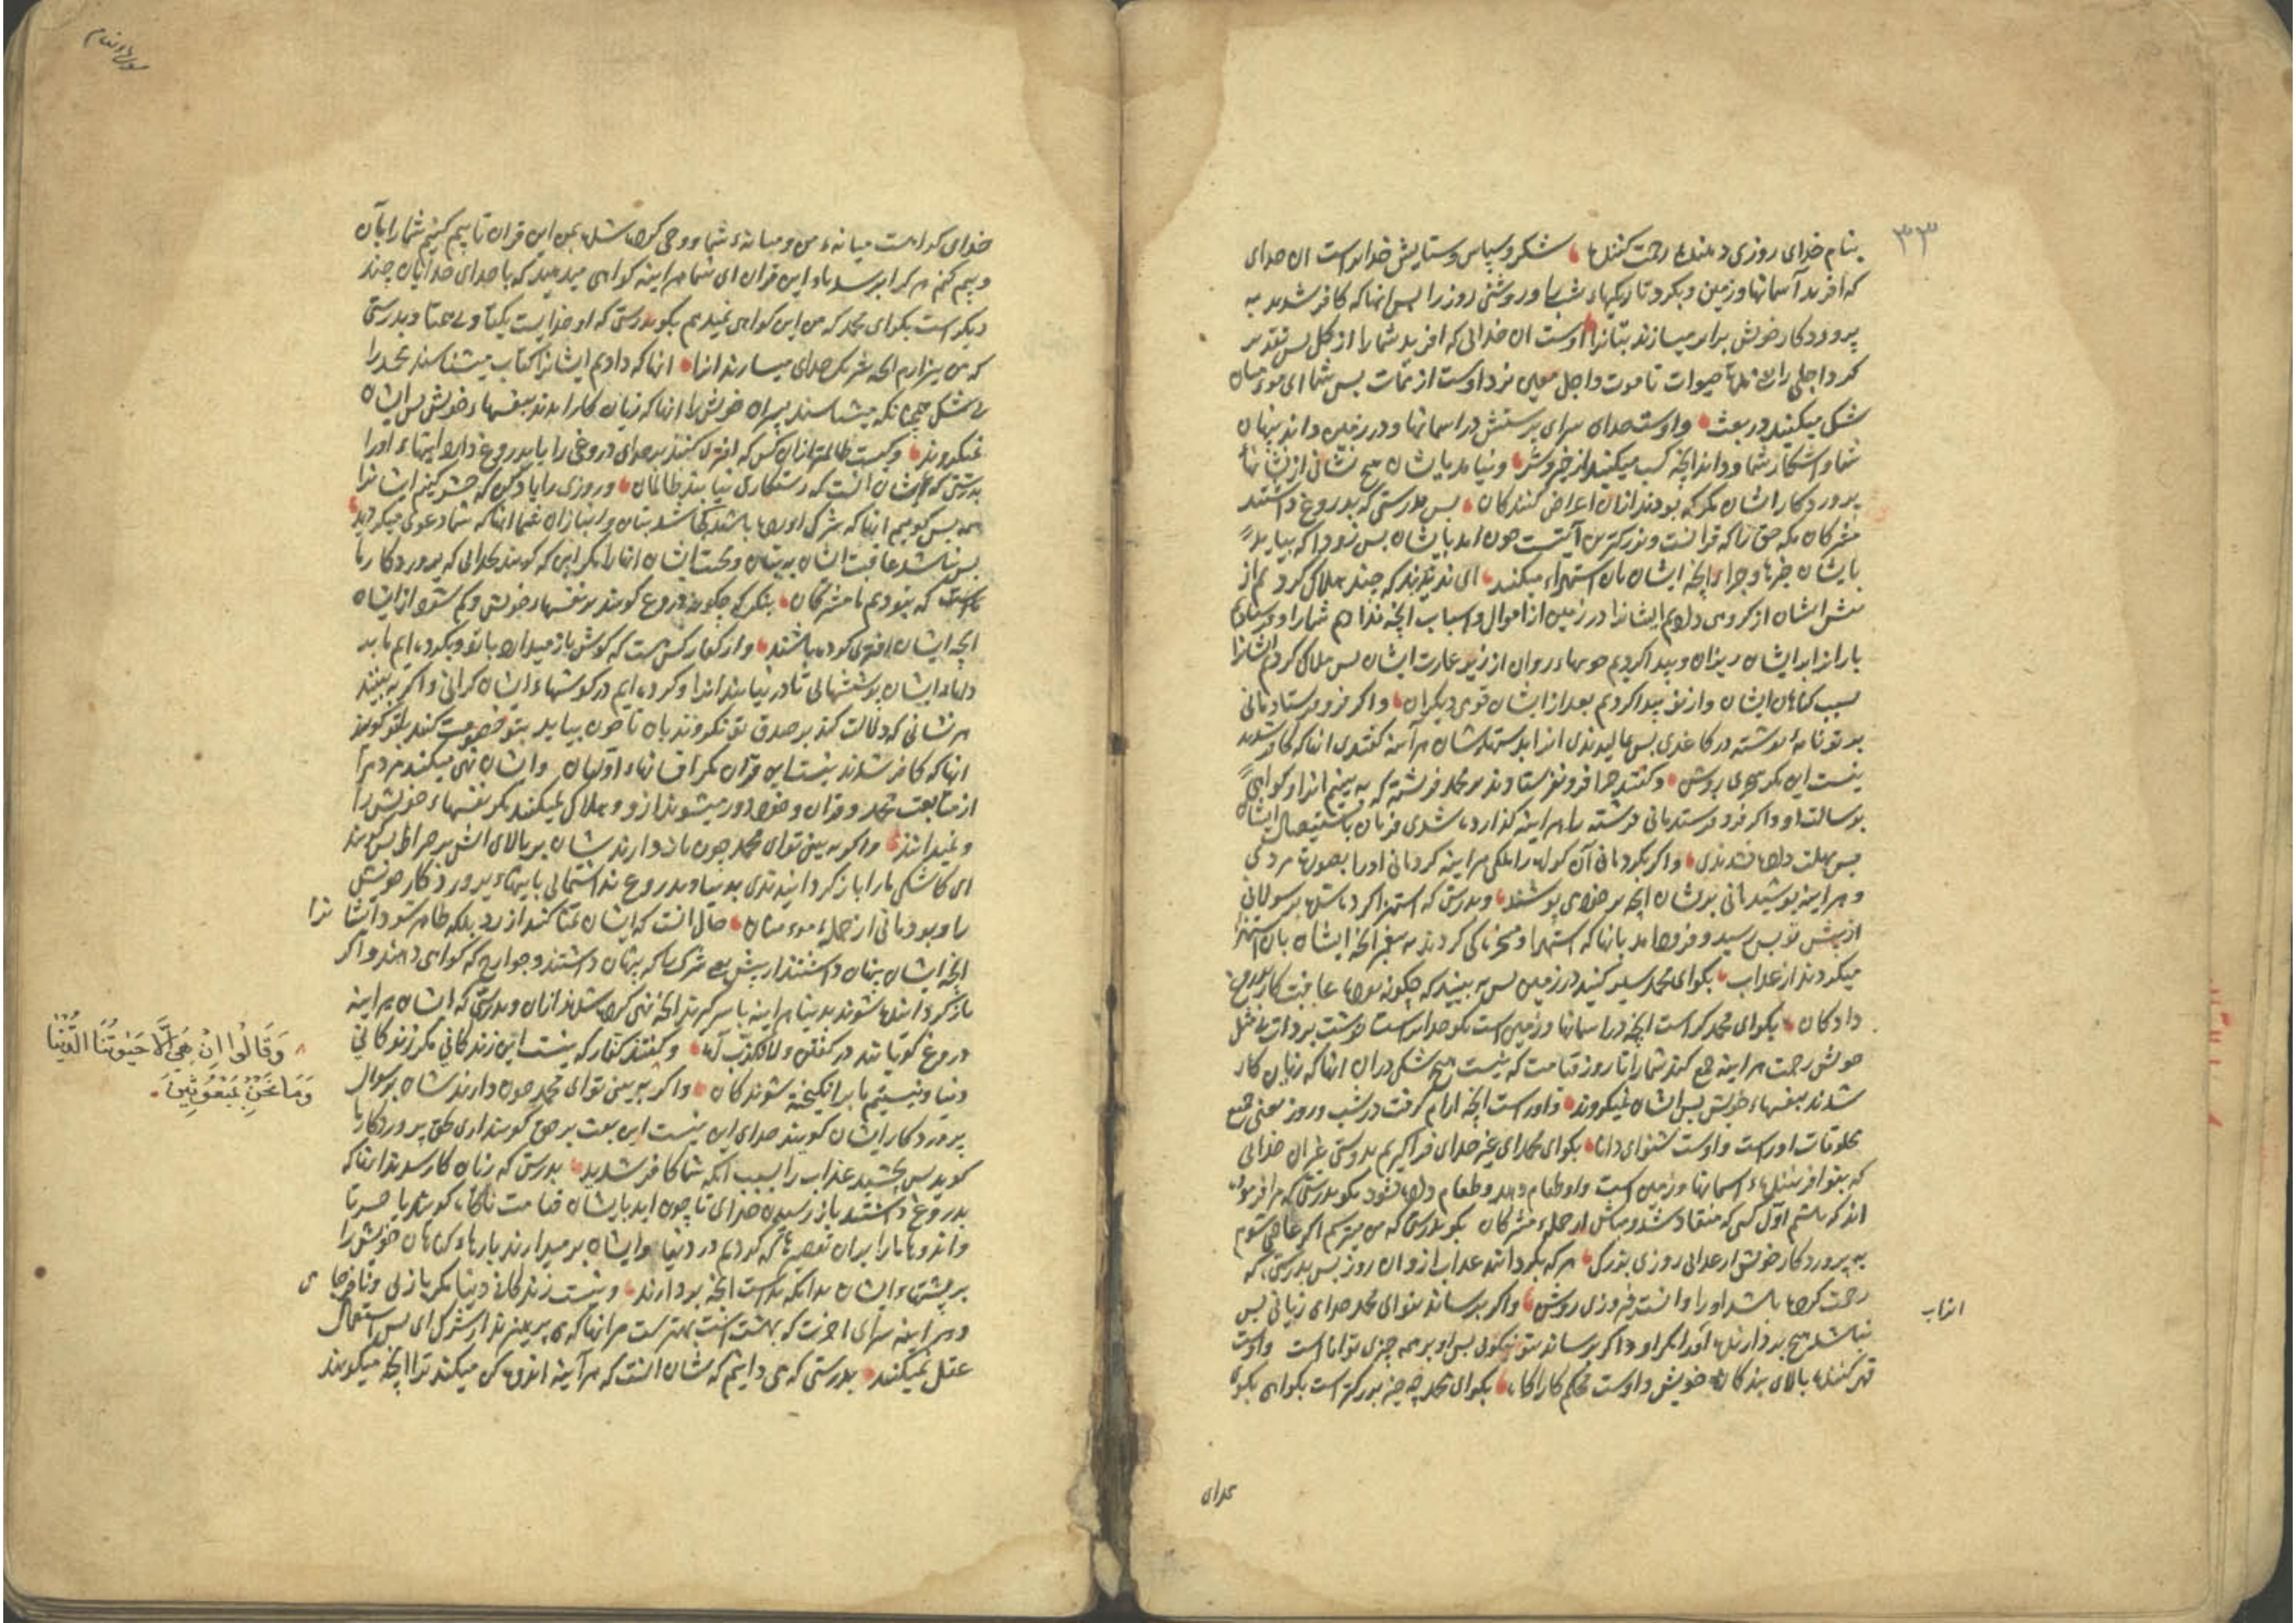 ۳۳
بنام خدای روزی دهنده رحمت کننده شکر و سپاس و ستایش خدایراست ان خدای
که افرید آسمانها و زمین و بکرد تاریکیهاء شب را و روشنی روز را بس انها که کافر شدند به
پروردکار خویش برابر میسازند بتانرا اوست ان خدائی که افرید شمارا از کل بس تقدیر
کرد اجلی را حیوات تا موت و اجل معین نزد اوست از ممات بس شما ای
شک میکنید در بعث و اوست خدای سزای پرستش در اسمانها و در زمین داند پنهان
شما و اشکار شما و داند انچه کسب میکنید از خیر و شر و نیامد بایشان هیچ نشانی از نشانهاء
پروردکار ایشان مکر که بودند ازان اعراض کنندکان بس بدرستی که بدروغ داشتند
مشرکان مکه حق را که قرانست و بزرکترین آیتست چون امد بایشان بس زود که بیاید
بایشان خبرها و جزاء انچه ایشان بان استهزاء میکنند ای ندیدند که چند هلاک کردیم از
پیش ایشان از کروهی دادیم ایشانرا در زمین از اموال و اسباب انچه ندادیم شمارا و فرستادیم
بارانرا بر ایشان ریزان و پیدا کردیم جویهاء روان از زیر عمارت ایشان بس هلاک کردیم ایشانرا
بسبب کناهان ایشان و از نو پیدا کردیم بعد از ایشان قومی دیکران و اکر فرو فرستادمانی
بر تو نامهٔ نوشته در کاغدی بس مالیدندی انرا بدستهاءشان هر آینه کفتندی انها که کافر شدند
نیست این مکر سحری روشن و کفتند چرا فرو نفرستادند بر محمد فرشتهٔ که به بینیم انرا و کواهی
برسالت او و اکر فرو فرستدمانی فرشته را هر اینه کذارده شدی فرمان باستیصال ایشان
بس مهلت داده نشدندی و اکر بکردمانی آن رسول را ملکی هر اینه کردمانی اورا بصورت مردی
و هر اینه پوشیدمانی بریشان انچه بر خود می پوشند و بدرستی که استهزا کرده شد برسولانی
از پیش تو بس رسید و فرود امد بانها که استهزا و سخرناکی کردند به پیغمبر انچه ایشان بان استهزا
میکردند از عذاب بکوای محمد سیر کنید در زمین بس به بینید که چکونه بود عاقبت کار بدروغ
دارکان بکوای محمد کراست انچه در اسمانها و زمین است بکو خدایراست نوشت بر ذات
خویش رحمت هر اینه جمع کند شمارا تا روز قیامت که نیست هیچ شکی در ان انها که زیان کار
شدند بنفسهاء خویش بس ایشان نمیکروند و اوراست انچه ارام کرفت در شب و روز یعنی جمیع
مخلوقات اوراست و اوست شنوای دانا بکوای محمد ای غیر خدای فراکیریم بدوستی غیر ان خدائی
که بنو افریننده اسمانها و زمین است و او طعام دهد و طعام داده نشود بکو بدرستی که من فرموده
اند که باشم اوّل کسی که منقاد شد و مباش از جملهء مشرکان بکو بدرستی که من میترسم اکر عاصی شوم
به پروردکار خویش از عذاب روزی بزرک هر که بکردانند عذاب ازو ان روز بس بدرستی که
رحمت کرده باشد اورا و انست فیروزی روشن و اکر برساند بتو ای محمد خدای زیانی بس
نباشد هیچ بردارنده آنرا مکر او و اکر برساند بتو نیکوئی بس او بر همه چیزی تواناست و اوست
قهر کننده بالای بندکان خویش و اوست محکم کار اکاه بکوای محمد چه چیز بزرکتراست بکواهی بکو
سورة الانعام
خدای کواهست میانهء من و میانهء شما و وحی کرده شد بمن این قران تا بیم کنم شمارا بآن
و بیم کنم هر کرا برسد باو این قران ای شما هر اینه کواهی میدهید که با خدای خدایان چند
دیکر است بکوای محمد که من این کواهی نمیدهم بکو بدرستی که او خدایست یکتا و بی همتا و بدرستی
که من بیزارم انچه شریک خدای میسازند انرا انها که دادیم ایشانرا کتاب میشناسند محمد را
بی شک چنانکه میشناسند پسران خویش را انها که زیان کار امدند بنفسهاء خویش بس ایشان
نمیکروند و کیست ظالمتر از ان کس که افترا کند بر خدای دروغی را یا بدروغ دارد ایتهاء اورا
بدرستی که شان انست که رستکاری نیابند ظالمان و روزی را یاد کن که حشر کنیم ایشانرا
همه بس کوییم انها که شرک اورده باشند کجا شد بتان و انبازان شما انها که شما دعوی میکردید
بس نباشد عاقبت ایشان به بتان و محبت ایشان انهارا مکر این که کویند بخدائی که پروردکار ما
است که نبودیم ما مشرکان بنکر که چکونه دروغ کویند بر نفسهاء خویش و کم شود از ایشان
انچه ایشان افترا کرده باشند و از کفار کس هست که کوش باز میدارد با تو و بکرده ایم ما بر
دلهاء ایشان پوششهائی تا در نیابند انرا و کرده ایم در کوشهاء ایشان کرانی و اکر به بینند
هر نشانی که دلالت کند بر صدق تو نکروند بان تا چون بیایند بتو خصومت کنند بتو کویند
انها که کافر شدند نیست این قرآن مکر افسانهاء اوّلیان و ایشان نهی میکنند مردم را
از متابعت محمد و قران و خود دور میشوند ازو و هلاک نمیکنند مکر نفسهاء خویش را
و نمیدانند و اکر به بینی تو ای محمد چون باز دارندشان بر بالای اتش بر صراط بس کویند
ای کاشکی مارا باز کردانیدندی بدنیا و بدروغ نداشتمانی بایتهاء پروردکار خویش
را و بودمانی از جملهء مومنان حال انست که ایشان تمنا کنند از رد بلکه ظاهر شود ایشانرا
انچه ایشان پنهان داشتند از پیش شرک را که پنهان داشتند و جوارح که کواهی دهند و اکر
باز کردانیده شوند بدنیا هر اینه با سر کیرند انچه نهی کرده شدند ازان و بدرستی که ایشان هر اینه
دروغ کویانند در کفتن و لا نکذّب آه و کفتند کفار که نیست این زندکانی مکر زندکانی
دنیا و نیستیم ما بر انکیخته شوندکان و اکر به بینی تو ای محمد چون دارندشان بر سوال
پروردکار ایشان کویند خدای این نیست این بعث بر حق کویند اری بحق پروردکار ما
کوید بس بچشید عذاب را بسبب انکه شما کافر شدید بدرستی که زیان کار شدند انها که
بدروغ داشتند باز رسیدن خدای تا چون اید بایشان قیامت ناکاه کویند یا حسرتا
و اندوها مارا بر ان تقصیرها که کردیم در دنیا و ایشان بر میدارند بارهاء کناهان خویش را
بر پشتهاء ایشان بدانکه بداست انچه بردارند و نیست زندکانی دنیا مکر بازی و
و هر اینه سرای اخرت که بهشت است بهتر ست مر انها که می پرهیزند از شرک ای بس استعمال
عقل نمیکنند بدرستی که می دانیم که شان انست که هر آینه اندوهکن میکند ترا انچه میکویند
وَقَالُوا اِنْ هِيَ اِلَّا حَيٰوتُنَا الدُّنْيَا
وَمَا نَحْنُ بِمَبْعُوثِينَ